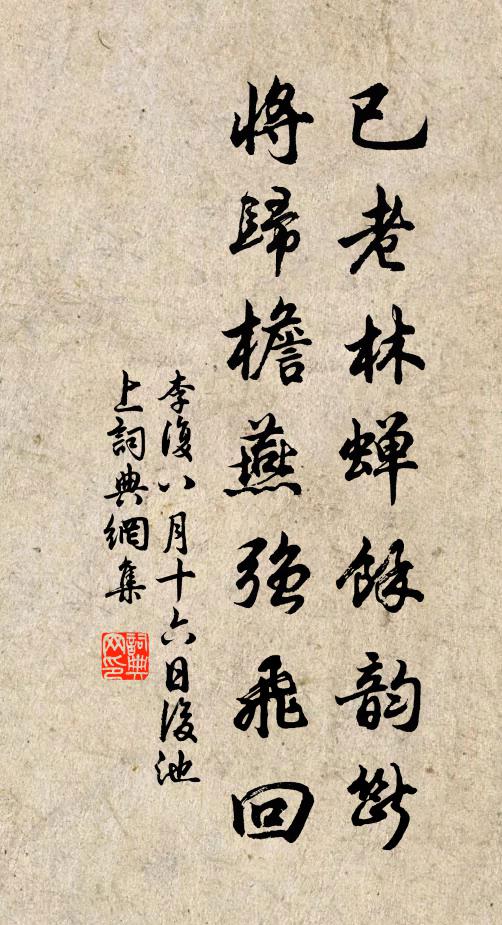 已老林蝉餘韵斷
將歸檐燕强飛回
李復八月十六日後池
上詞典網集
詞典网印